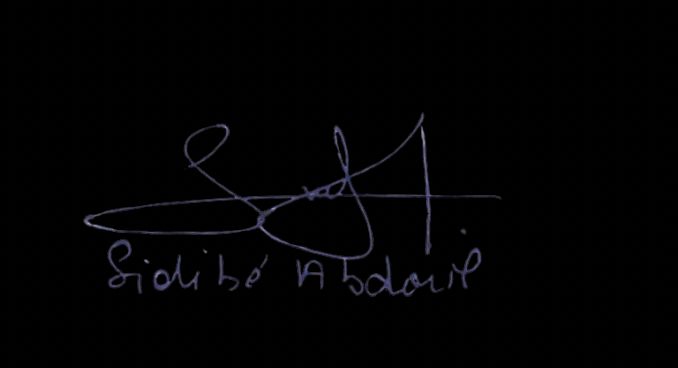 Sidibé Abdoul